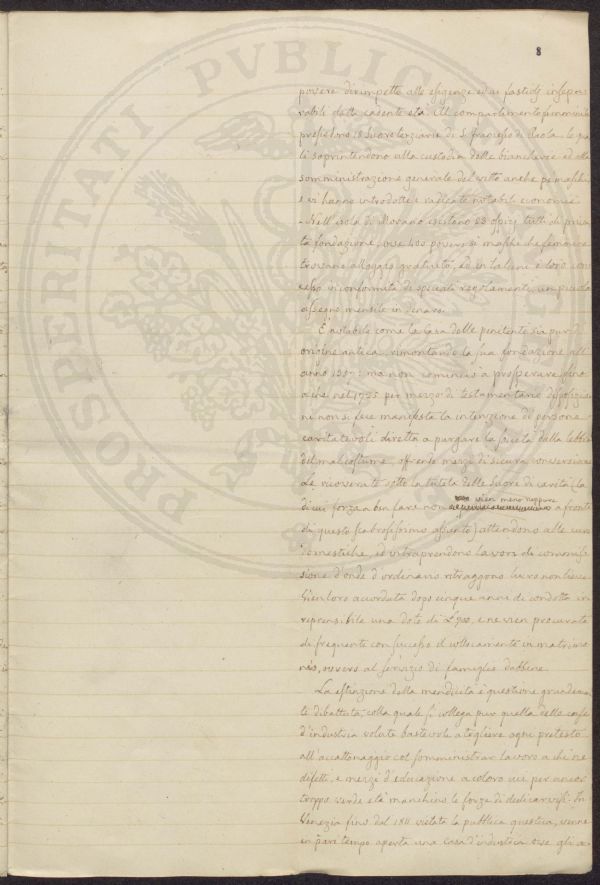 8
PROSPERITATI PVBLICAE
povere dirimpetto alle esigenze ed ai fastidj insepa-
rabili dalla cadente età. Al compartimento femminile
presiedono 15 Suore terziarie di S. Francesco di Paola, le qua
li soprintendono alla custodia delle biancherie ed alla
somministrazione generale del vitto anche pei maschi,
e vi hanno introdotte e radicate notabili economie.
Nell'isola di Murano esistono 23 ospizj tutti di priva
ta fondazione, ove 400 poveri sì maschi che femmine
trovano alloggio gratuito, ed in taluni è loro con
cesso in conformità di speciali regolamenti, un piccolo
assegno mensile in denaro.
È notabile come la Casa delle penitenti sia pur di
origine antica, rimontando la sua fondazione all'
anno 1357: ma non cominciò a prosperare fino
a che nel 1725 per mezzo di testamentarie disposizio
ni non si fece manifesta la intenzione di persone
caritatevoli diretta a purgare la società dalla lebbra
del mal costume, offrendo mezzi di sicura conversione.
Le ricoverate sotto la tutela delle Suore di carità (la
di cui forza a ben fare non vien meno neppure a fronte
di questo scabrosissimo assunto) attendono alle cure
domestiche, ed intraprendono lavori di commis-
sione d'onde d'ordinario ritraggono lucro non lieve.
Vien loro accordata dopo cinque anni di condotta ir
reprensibile una dote di L. 300, e ne vien procurato
di frequente con successo il collocamento in matrimo
nio, ovvero al servizio di famiglie dabbene.
La estinzione della mendicità è questione grandemen
te dibattuta, colla quale si collega pur quella delle case
d'industria volute bastevoli a togliere ogni pretesto
all'accattonaggio col somministrar lavoro a chi ne
difetti, e mezzi d'educazione a coloro cui per ancor
troppo verde età manchino le forze di dedicarvisi. In
Venezia fino dal 1811 vietata la pubblica questua, venne
in pari tempo aperta una casa d'industria ove gli a-